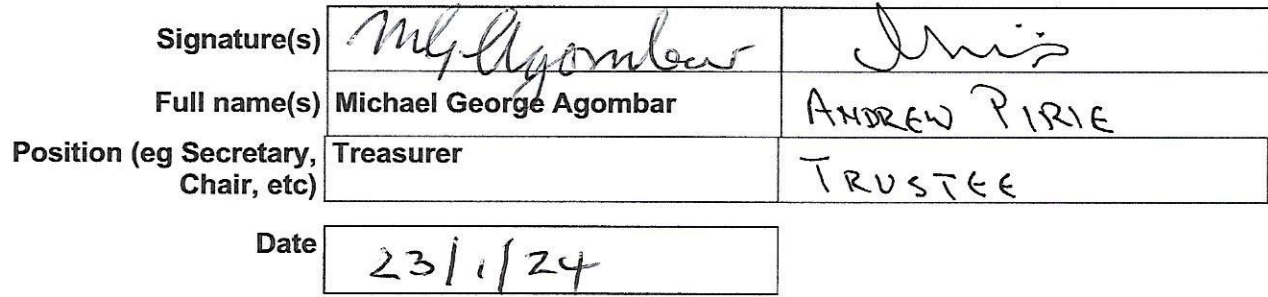 Signature(s) MG Agombar
Full name(s) Michael George Agombar ANDREW PIRIE
Position (eg Secretary, Treasurer TRUSTEE
Chair, etc)
Date 23/1/24